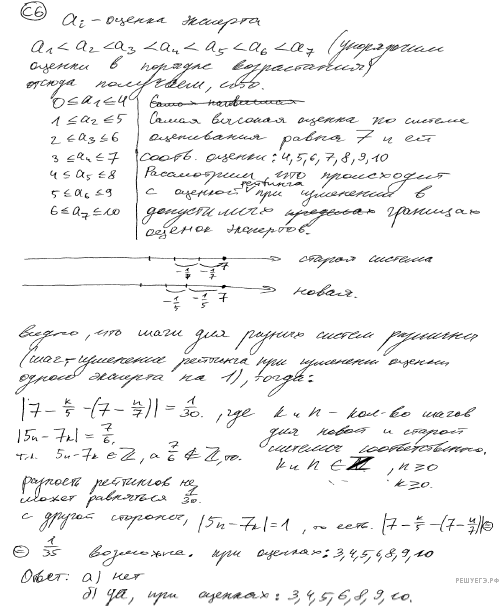 С6
aᵢ - оценка эксперта
a₁ < a₂ < a₃ < a₄ < a₅ < a₆ < a₇ (упорядочим
оценки в порядке возрастания)
отсюда получаем, что.
0 ≤ a₁ ≤ 4
1 ≤ a₂ ≤ 5
2 ≤ a₃ ≤ 6
3 ≤ a₄ ≤ 7
4 ≤ a₅ ≤ 8
5 ≤ a₆ ≤ 9
6 ≤ a₇ ≤ 10
Самая высокая оценка по системе
оценивания равна 7 и ей
соотв. оценки: 4,5,6,7,8,9,10
Рассмотрим, что происходит
с оценкой рейтинга при изменении в
допустимых границах
оценок экспертов.
-1/7 -1/7 7 старая система
-1/5 -1/5 7 новая.
видно, что шаги для разных систем различны
(шаг - изменение рейтинга при изменении оценки
одного эксперта на 1), тогда:
|7 - k/5 - (7 - n/7)| = 1/30. , где k и n - кол-во шагов
|5n - 7k| = 7/6, для новой и старой
т.к. 5n - 7k ∈ Z, а 7/6 ∉ Z, то. системы соответственно.
k и n ∈ Z, n ≥ 0
k ≥ 0.
разность рейтингов не
может равняться 1/30.
с другой стороны, |5n - 7k| = 1, то есть. |7 - k/5 - (7 - n/7)| =
= 1/35 возможно. при оценках: 3,4,5,6,8,9,10
Ответ: а) нет
б) да, при оценках: 3,4,5,6,8,9,10.
РЕШУЕГЭ.РФ